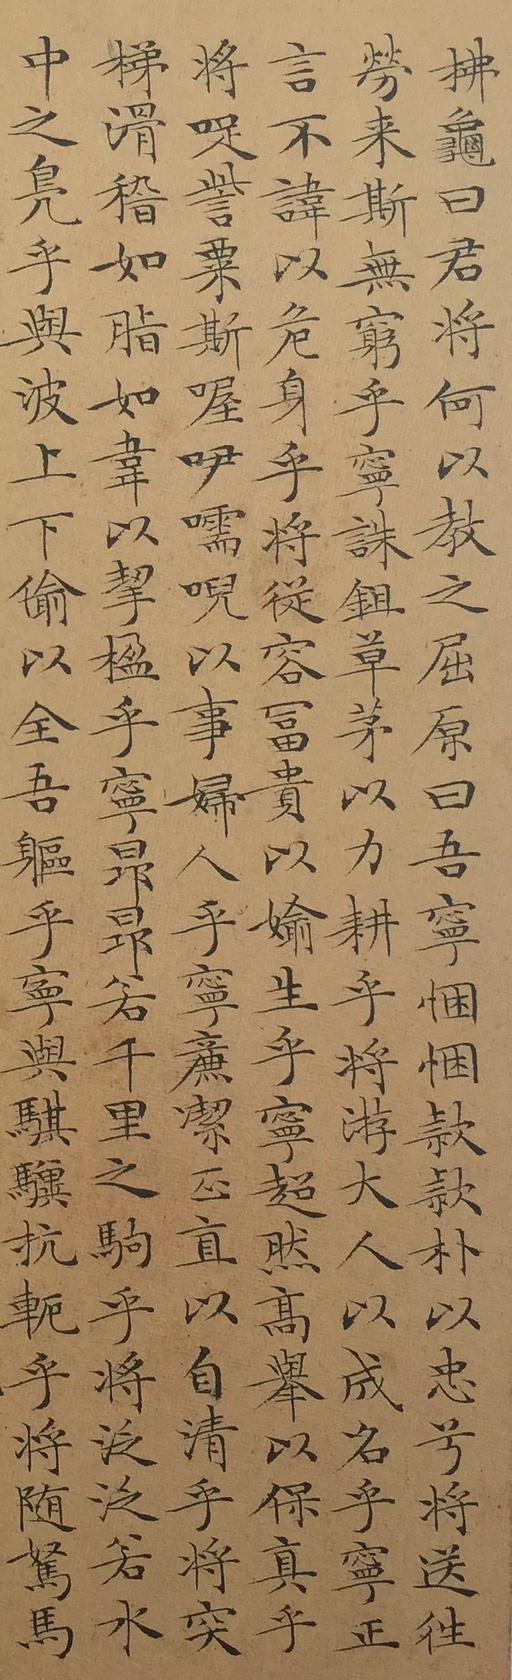 拂龜曰君将何以教之屈原曰吾寧悃悃款款朴以忠乎将送往
勞来斯無窮乎寧誅鉏草茅以力耕乎将游大人以成名乎寧正
言不諱以危身乎将從容冨貴以媮生乎寧超然高舉以保真乎
将哫訾粟斯喔咿嚅唲以事婦人乎寧廉潔正直以自清乎将突
梯滑稽如脂如韋以挈楹乎寧昂昂若千里之駒乎将泛泛若水
中之鳧乎與波上下偷以全吾軀乎寧與騏驥抗軛乎将随駑馬